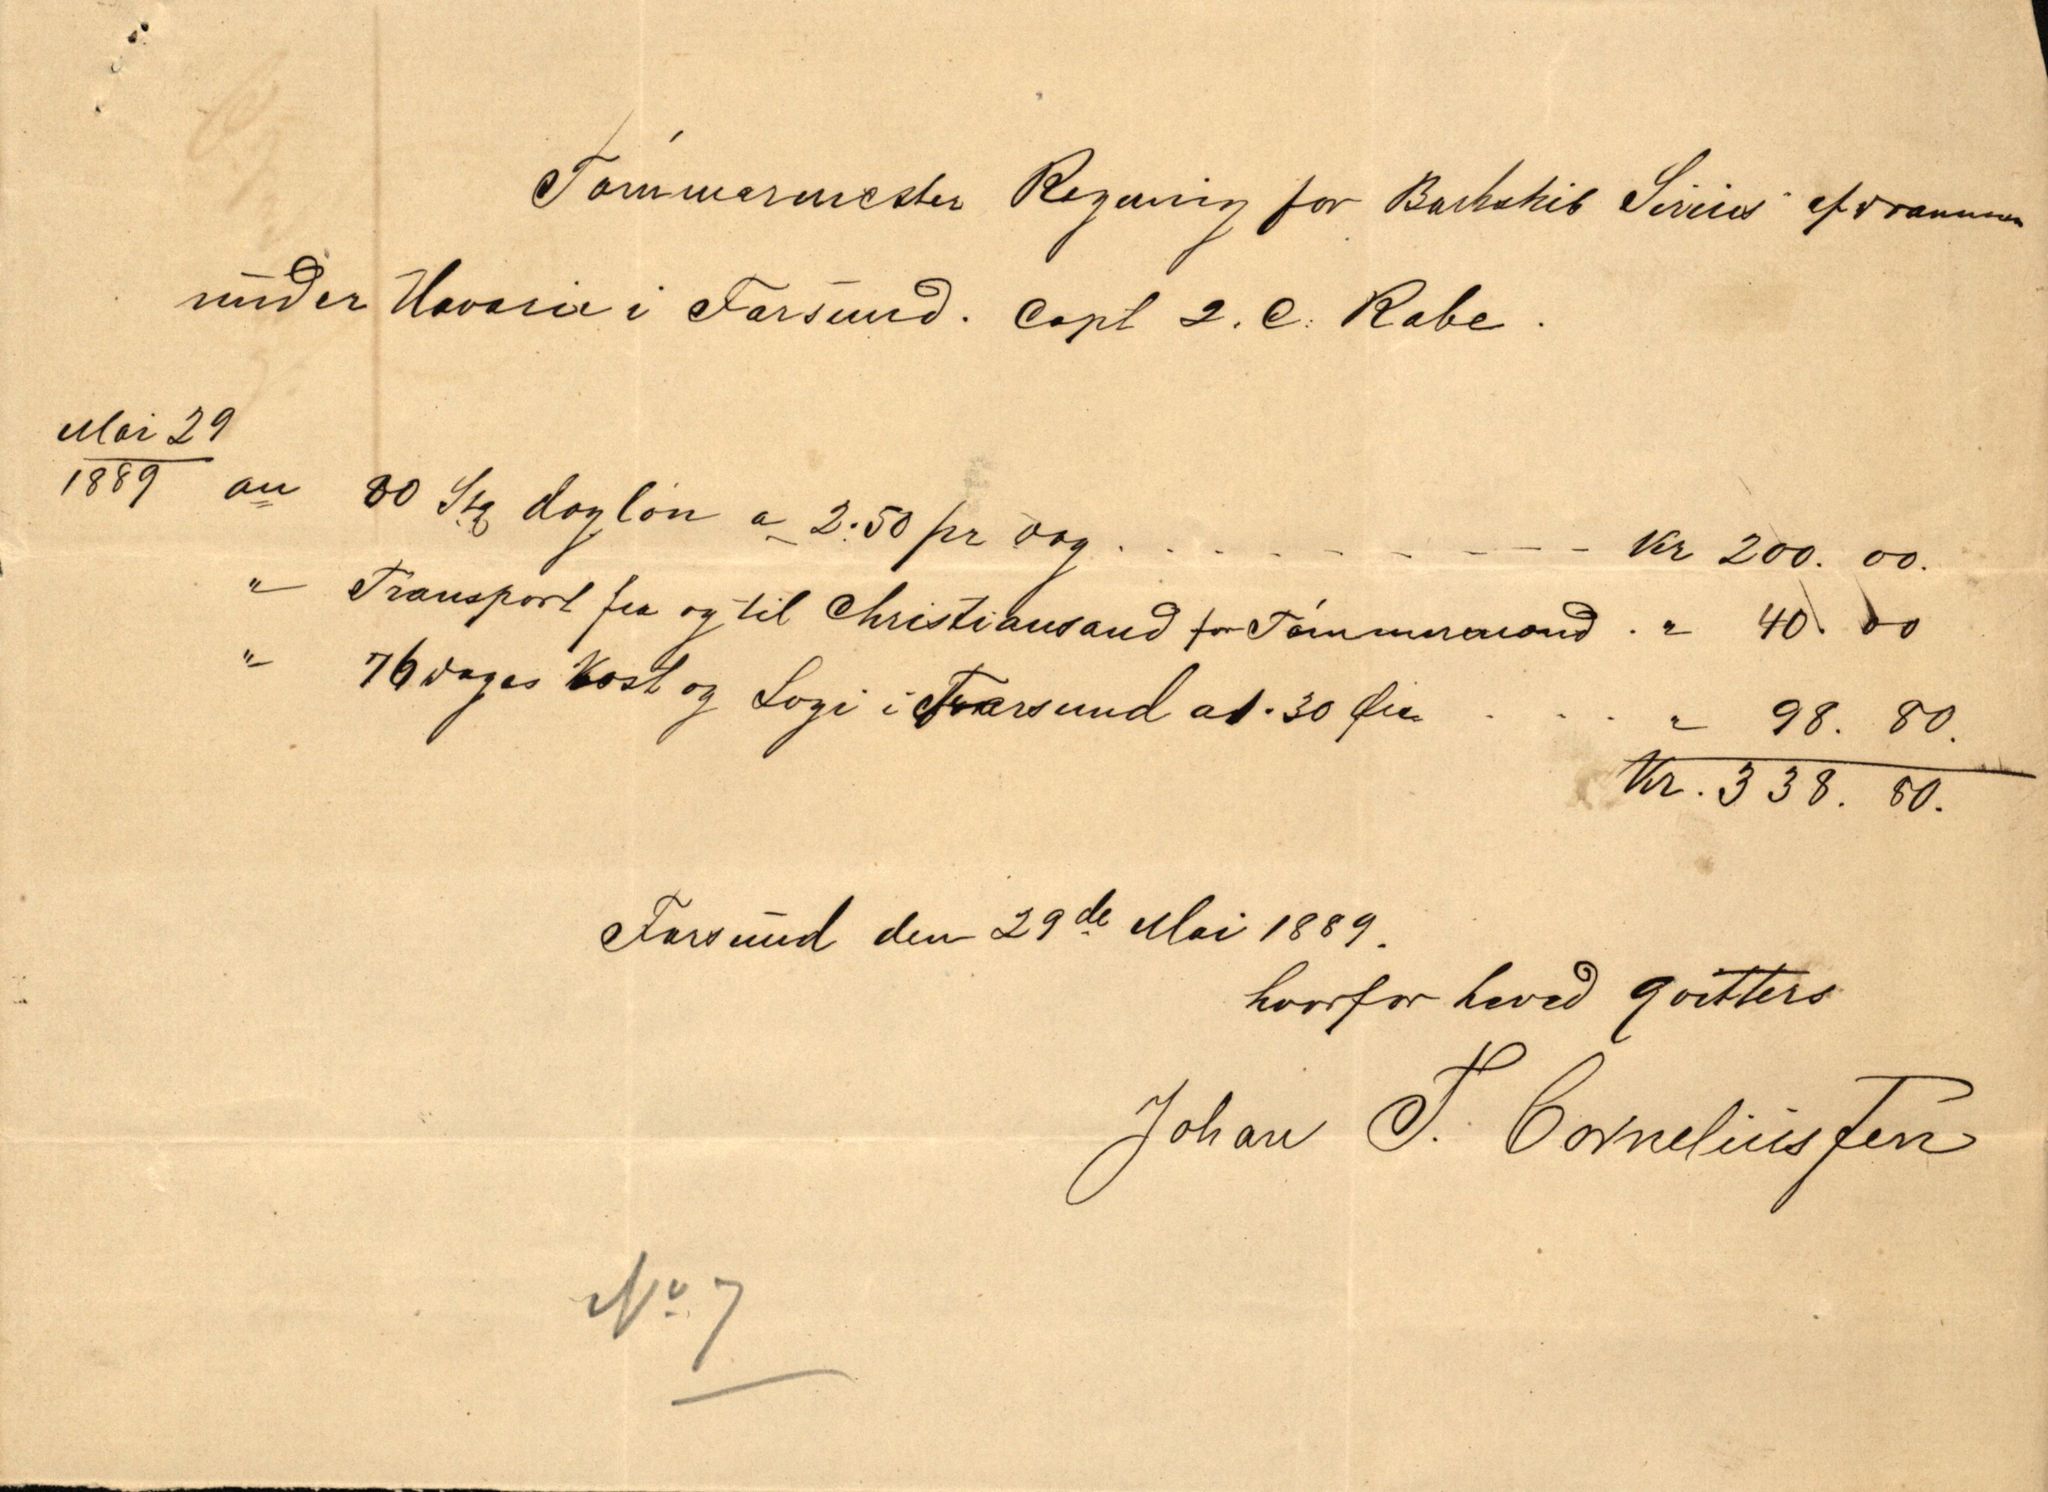 Tömmermester Regning for Barkskib Sirius af Drammen
under Havarie i Farsund. Capt L. C. Rabe.
Mai 29
1889 an 80 Stg dag lön a 2.50 pr dag . . . . . . . . . . Kr 200. 00.
" Transport fra og til Christiansand for Tömmermand . " 40. 00
" 76 dages Kost og Logi i Farsund a 1.30 Øre . . . . " 98. 80.
Kr. 338. 80.
Farsund den 29de Mai 1889.
hvorfor herved qvitters
Johan T. Corneliussen
No 7